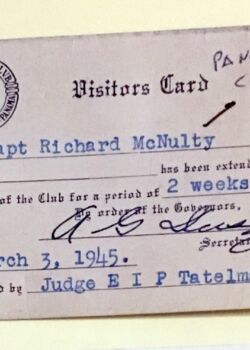 CLUB
PANAMA
PAN
C
Visitors Card
apt Richard McNulty
has been extend
of the Club for a period of 2 weeks
By order of the Governors.
Secreta
rch 3, 1945.
d by Judge E I P Tatelm